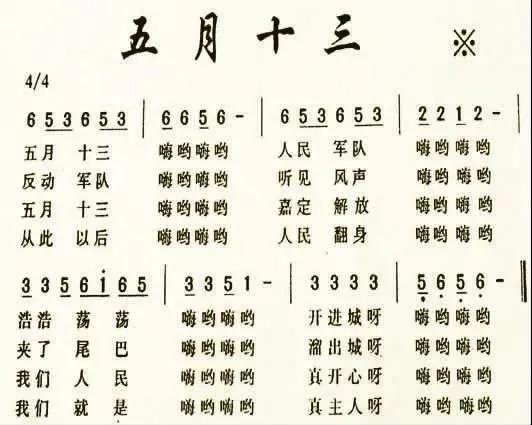 五月十三 ※
4/4
6 5 3 6 5 3 | 6 6 5 6 - | 6 5 3 6 5 3 | 2 2 1 2 - |
五月 十三 嗨哟嗨哟 人民 军队 嗨哟嗨哟
反动 军队 嗨哟嗨哟 听见 风声 嗨哟嗨哟
五月 十三 嗨哟嗨哟 嘉定 解放 嗨哟嗨哟
从此 以后 嗨哟嗨哟 人民 翻身 嗨哟嗨哟
3 3 5 6 1 6 5 | 3 3 5 1 - | 3 3 3 3 | 5 6 5 6 - ‖
浩浩 荡荡 嗨哟嗨哟 开进城呀 嗨哟嗨哟
夹了 尾巴 嗨哟嗨哟 溜出城呀 嗨哟嗨哟
我们 人民 嗨哟嗨哟 真开心呀 嗨哟嗨哟
我们 就是 嗨哟嗨哟 真主人呀 嗨哟嗨哟